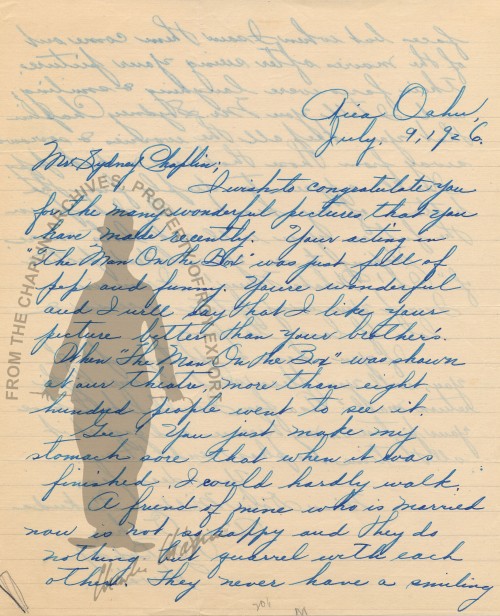 Aiea Oahu,
July. 9, 1926.
Mr. Sydney Chaplin;
I wish to congratulate you
for the many wonderful pictures that you
have made recently. Your acting in
"The Man On The Box" was just full of
pep and funny. You're wonderful
and I will say that I like your
picture better than your brother's.
When "The Man On the Box" was shown
at our theatre, more than eight
hundred people went to see it.
Gee, You just make my
stomach sore that when it was
finished, I could hardly walk.
A friend of mine who is married
now is not so happy and they do
nothing but quarrel with each
other. They never have a smiling
FROM THE CHAPLIN ARCHIVES. PROPERTY OF ROY EXPORT
Charlie Chaplin